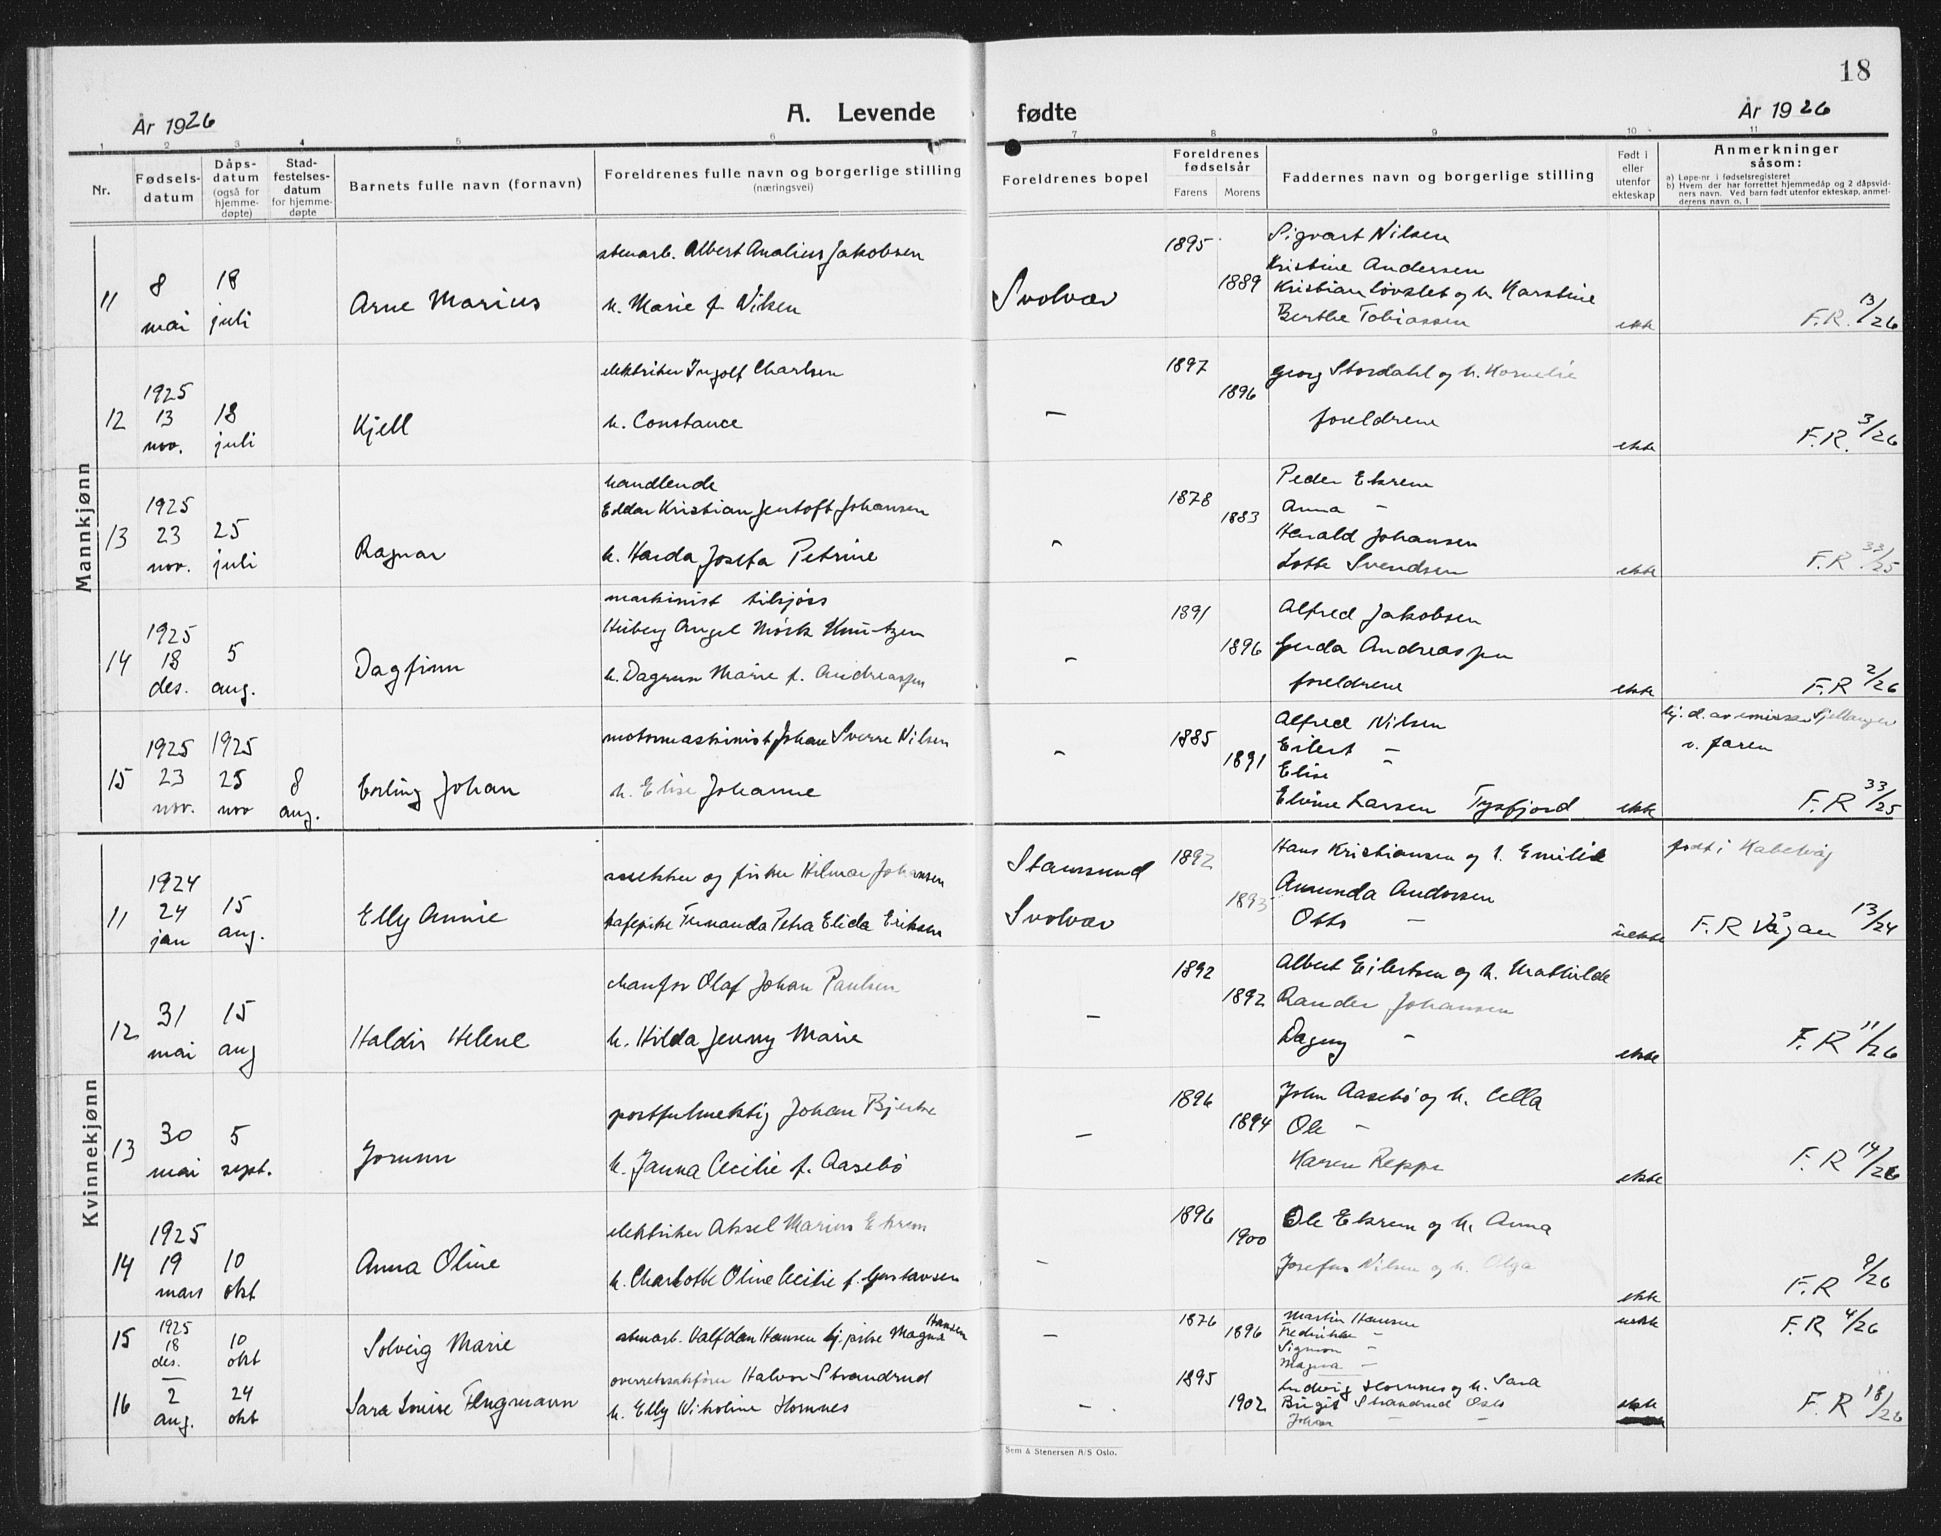 18
År 1926
A. Levende fødte
År 1926
1 2 3 4 5 6 7 8 9 10 11
Nr.
Fødselsdatum
Dåpsdatum (også for hjemmedøpte)
Stadfestelsesdatum for hjemmedøpte
Barnets fulle navn (fornavn)
Foreldrenes fulle navn og borgerlige stilling (næringsvei)
Foreldrenes bopel
Foreldrenes fødselsår
Farens Morens
Faddernes navn og borgerlige stilling
Født i eller utenfor ekteskap
Anmerkninger såsom:
a) Løpe-nr i fødselsregisteret
b) Hvem der har forrettet hjemmedåp og 2 dåpsvidners navn. Ved barn født utenfor ekteskap, anmelderens navn o. l
Mannkjønn
11
8 mai
18 juli
Arne Marius
stenarb. Albert Analius Jakobsen
h. Marie f. Nilsen
Svolvær
1895
1889
Sigvart Nilsen
Kristine Andersen
Kristian Løvslet og h. Karstine
Berthe Tobiassen
ekte
F.R. 13/26
12
1925 13 nov.
18 juli
Kjell
elektriker Ingolf Charlsen
h. Constance
–
1897
1896
Georg Stordahl og h. Kornelie
foreldrene
ekte
F.R. 3/26
13
1925 23 nov.
25 juli
Ragnar
handlende
Eddar Kristian Jentoft Johansen
h. Harda Josefa Petrine
–
1878
1883
Peder Ekrem
Anna –
Harald Johansen
Lotte Svendsen
ekte
F.R 33/25
14
1925 18 des.
5 aug.
Dagfinn
maskinist tilsjøss
Angel Mørk Knutzen
h. Dagrun Marie f. Andreassen
–
1891
1896
Alfred Jakobsen
Gerda Andreassen
foreldrene
ekte
F.R 2/26
15
1925 23 nov.
1925 25 nov
8 aug.
Erling Johan
motormaskinist Johan Sverre Nilsen
h. Elise Johanne
–
1885
1891
Alfred Nilsen
Eilert –
Elise –
Eline Larsen Tysfjord
ekte
hj. d. av emissær Fjellanger
v. faren
F.R 33/25
Kvinnekjønn
11
1924 24 jan
15 aug.
Elly Annie
snekker og fisker Hilmar Johansen
kafépike Fernanda Petra Elida Eriksen
Stamsund
Svolvær
1892
1893
Hans Kristiansen og h. Emilie
Amunda Andorsen
Otto –
uekte
født i Kabelvåg
F.R Vågan 13/24
12
31 mai
15 aug
Haldis Helene
chaufør Olaf Johan Paulsen
h. Hilda Jenny Marie
–
1892
1892
Albert Eilertsen og h. Mathilde
Rander Johansen
Dagny –
ekte
F.R 11/26
13
30 mai
5 sept.
Jorunn
postfulmektig Johan Bjerke
h. Janna Cecilie f. Aasebø
–
1896
1894
John Aasebø og h. Cella
Ole –
Karen Reppe
ekte
F.R 14/26
14
1925 19 mars
10 okt
Anna Oline
elektriker Aksel Marius Ekrem
h. Charlotte Oline Cecilie f. Gustavsen
–
1896
1900
Ole Ekrem og h. Anna
Josefus Nilsen og h. Olga
ekte
F.R 9/26
15
1925 18 des.
10 okt
Solveig Marie
stenarb. Halfdan Hansen hj. pike Magna Hansen
–
1876
1896
Martin Hansen
Fredrikke –
Sigmon –
Magna –
uekte
F.R 4/26
16
2 aug.
24 okt
Sara Louise Flugmann
overrettssakfører Halvor Strandrud
h. Elly Nikoline Hornnes
–
1895
1902
Ludvig Hornnes og h. Sara
Birgit Strandrud Oslo
Johan – –
ekte
F.R 18/26
Sem & Stenersen A/S Oslo.